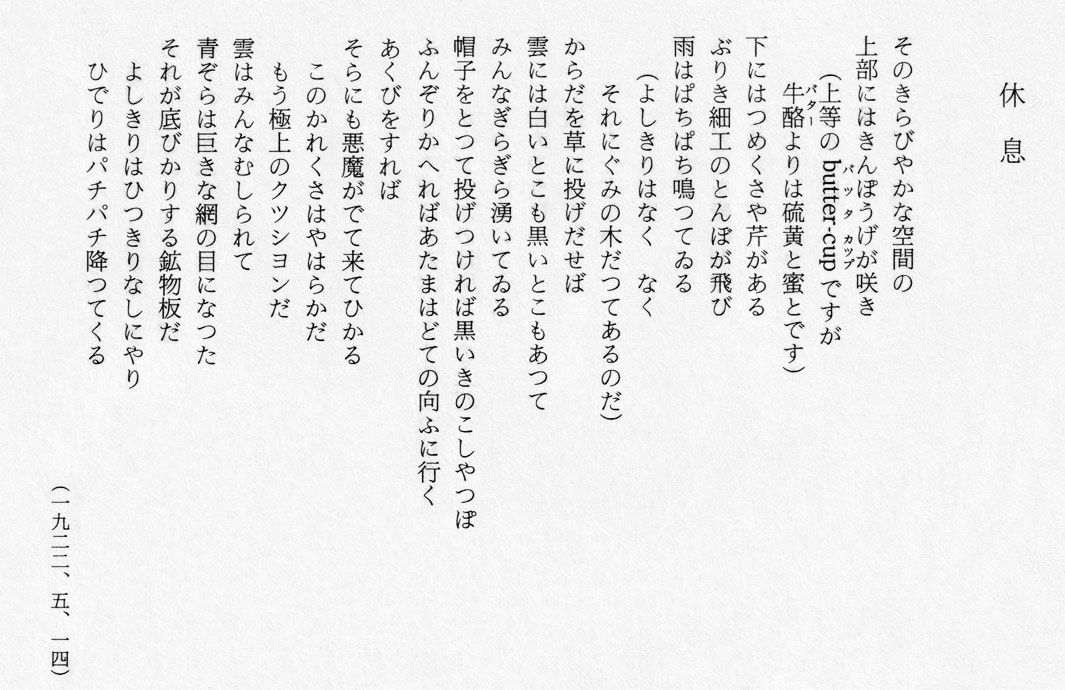 休息
そのきらびやかな空間の
上部にはきんぽうげが咲き
(上等の butter-cup ですが
バツタカツプ
牛酪よりは硫黄と蜜とです)
バター
下にはつめくさや芹がある
ぶりき細工のとんぼが飛び
雨はぱちぱち鳴つてゐる
(よしきりはなく なく
それにぐみの木だつてあるのだ)
からだを草に投げだせば
雲には白いとこも黒いとこもあつて
みんなぎらぎら湧いてゐる
帽子をとつて投げつければ黒いきのこしやつぽ
ふんぞりかへればあたまはどての向ふに行く
あくびをすれば
そらにも悪魔がでて来てひかる
このかれくさはやはらかだ
もう極上のクツシヨンだ
雲はみんなむしられて
青ぞらは巨きな網の目になつた
それが底びかりする鉱物板だ
よしきりはひつきりなしにやり
ひでりはパチパチ降つてくる
(一九二二、五、一四)